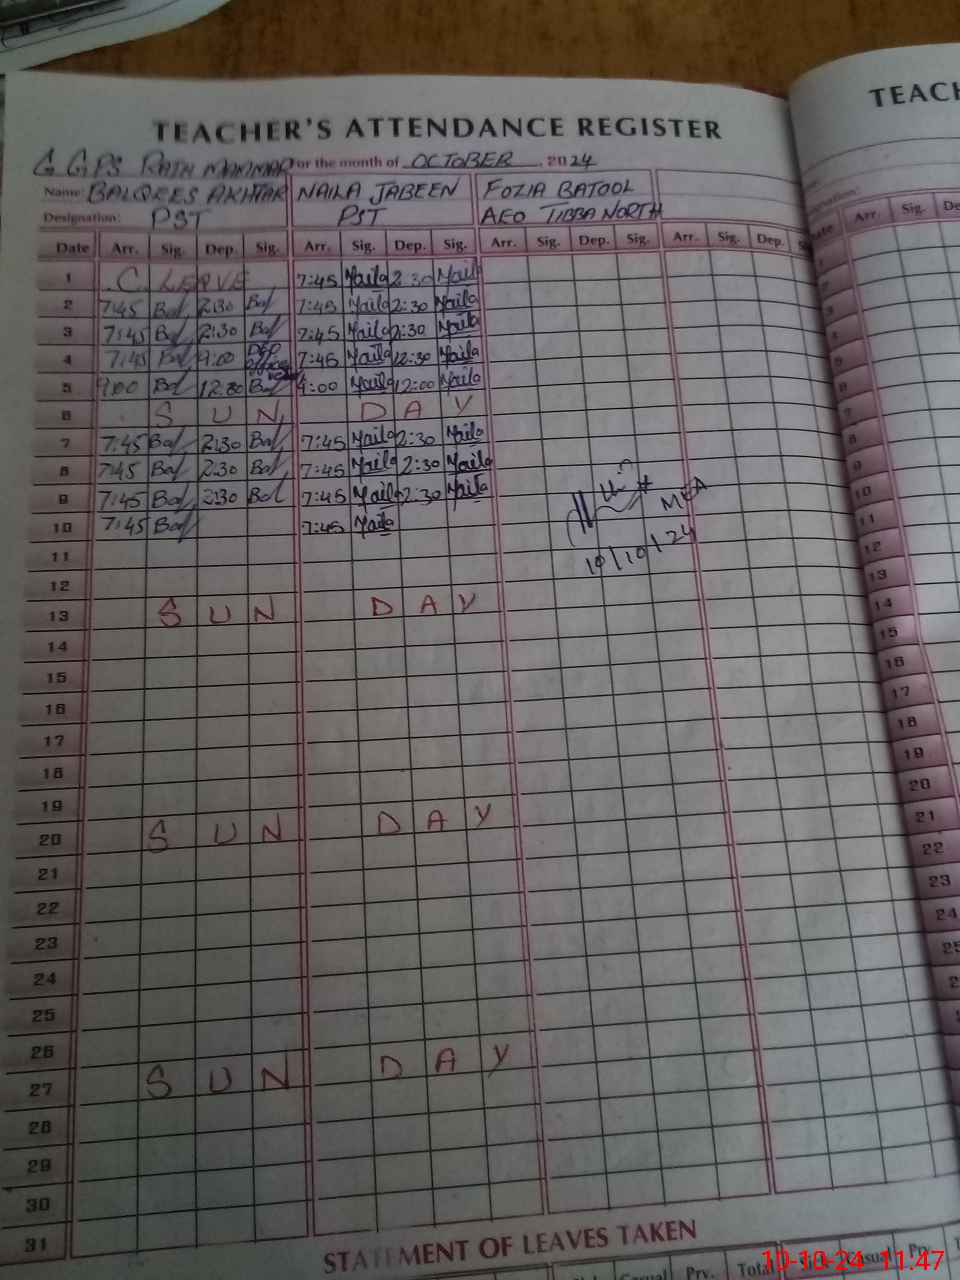 TEACHER'S ATTENDANCE REGISTER
TEACH
G GPS For the month of OCTOBER, 2024
Name: BALQEES AKHTAR NAILA JABEEN FOZIA BATOOL
Designation: PST PST AEO TIBBA NORTH
Date Arr. Sig. Dep. Sig. Arr. Sig. Dep. Sig. Arr. Sig. Dep. Sig. Arr. Sig. Dep. Arr. Sig.
1 C. LEAVE 7:45 Naila 2:30 Naila
2 7:45 Bal 2:30 Bal 7:45 Naila 2:30 Naila
3 7:45 Bal 2:30 Bal 7:45 Naila 2:30 Naila
4 7:45 Bal 7:45 Naila 12:30 Naila
5 9:00 Bal 12:00 Bal 9:00 Naila 12:00 Naila
6 S U N D A Y
7 7:45 Bal 2:30 Bal 7:45 Naila 2:30 Naila
8 7:45 Bal 2:30 Bal 7:45 Naila 2:30 Naila
9 7:45 Bal 2:30 Bal 7:45 Naila 2:30 Naila
10 7:45 Bal 7:45 Naila
MEA
10/10/24
11
12
13 S U N D A Y
14
15
16
17
18
19
20 S U N D A Y
21
22
23
24
25
26
27 S U N D A Y
28
29
30
31
STATEMENT OF LEAVES TAKEN
Casual Prv. Total Sick Casual Prv.
10-10-24 11:47